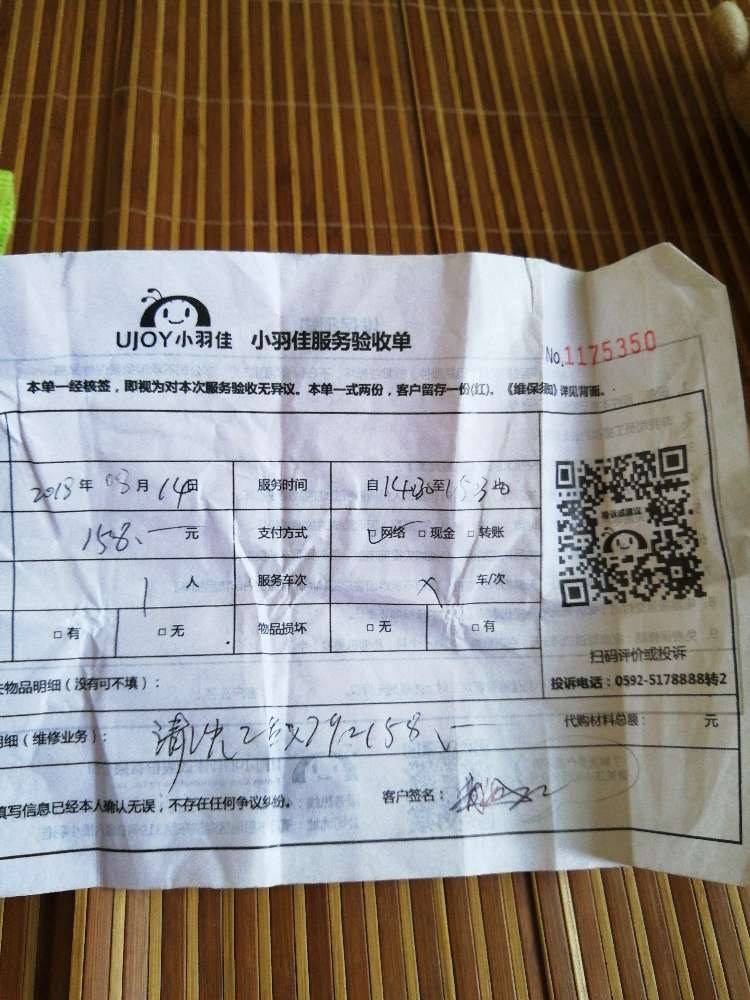 UJOY小羽佳 小羽佳服务验收单
No.1175350
本单一经核签，即视为对本次服务验收无异议。本单一式两份，客户留存一份(红)。《维保须知》详见背面。
年 03月14日 服务时间 自14:30至15:30
158.一元 支付方式 ☑网络 □现金 □转账
1人 服务车次 X 车/次
□有 □无 物品损坏 □无 □有
投诉或建议
扫码评价或投诉
投诉电话：0592-5178888转2
物品明细（没有可不填）：
明细（维修业务）： 清洗2台X79=158.一 代购材料总额： 元
填写信息已经本人确认无误，不存在任何争议纠纷。 客户签名：